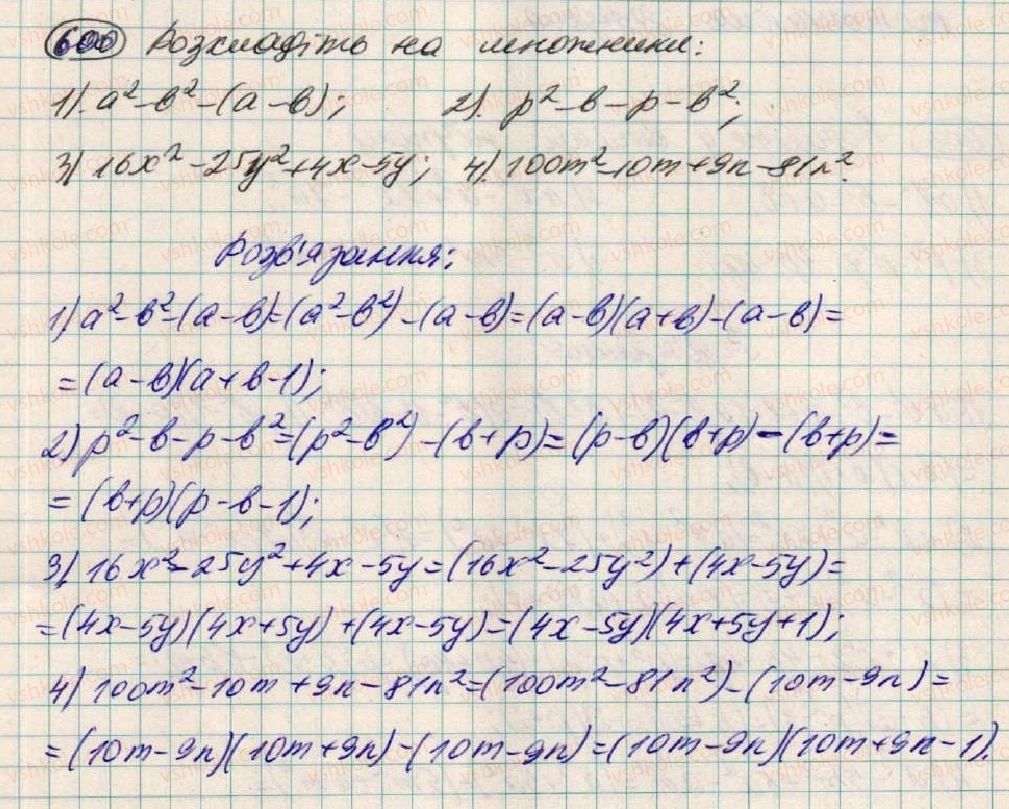 600 Розкладіть на множники:
1). a² - b² - (a - b); 2). p² - b - p - b²;
3) 16x² - 25y² + 4x - 5y; 4). 100m² - 10m + 9n - 81n².
Розв'язання:
1) a² - b² - (a - b) = (a² - b²) - (a - b) = (a - b)(a + b) - (a - b) =
= (a - b)(a + b - 1);
2) p² - b - p - b² = (p² - b²) - (b + p) = (p - b)(b + p) - (b + p) =
= (b + p)(p - b - 1);
3) 16x² - 25y² + 4x - 5y = (16x² - 25y²) + (4x - 5y) =
= (4x - 5y)(4x + 5y) + (4x - 5y) = (4x - 5y)(4x + 5y + 1);
4) 100m² - 10m + 9n - 81n² = (100m² - 81n²) - (10m - 9n) =
= (10m - 9n)(10m + 9n) - (10m - 9n) = (10m - 9n)(10m + 9n - 1).
vshkole.com